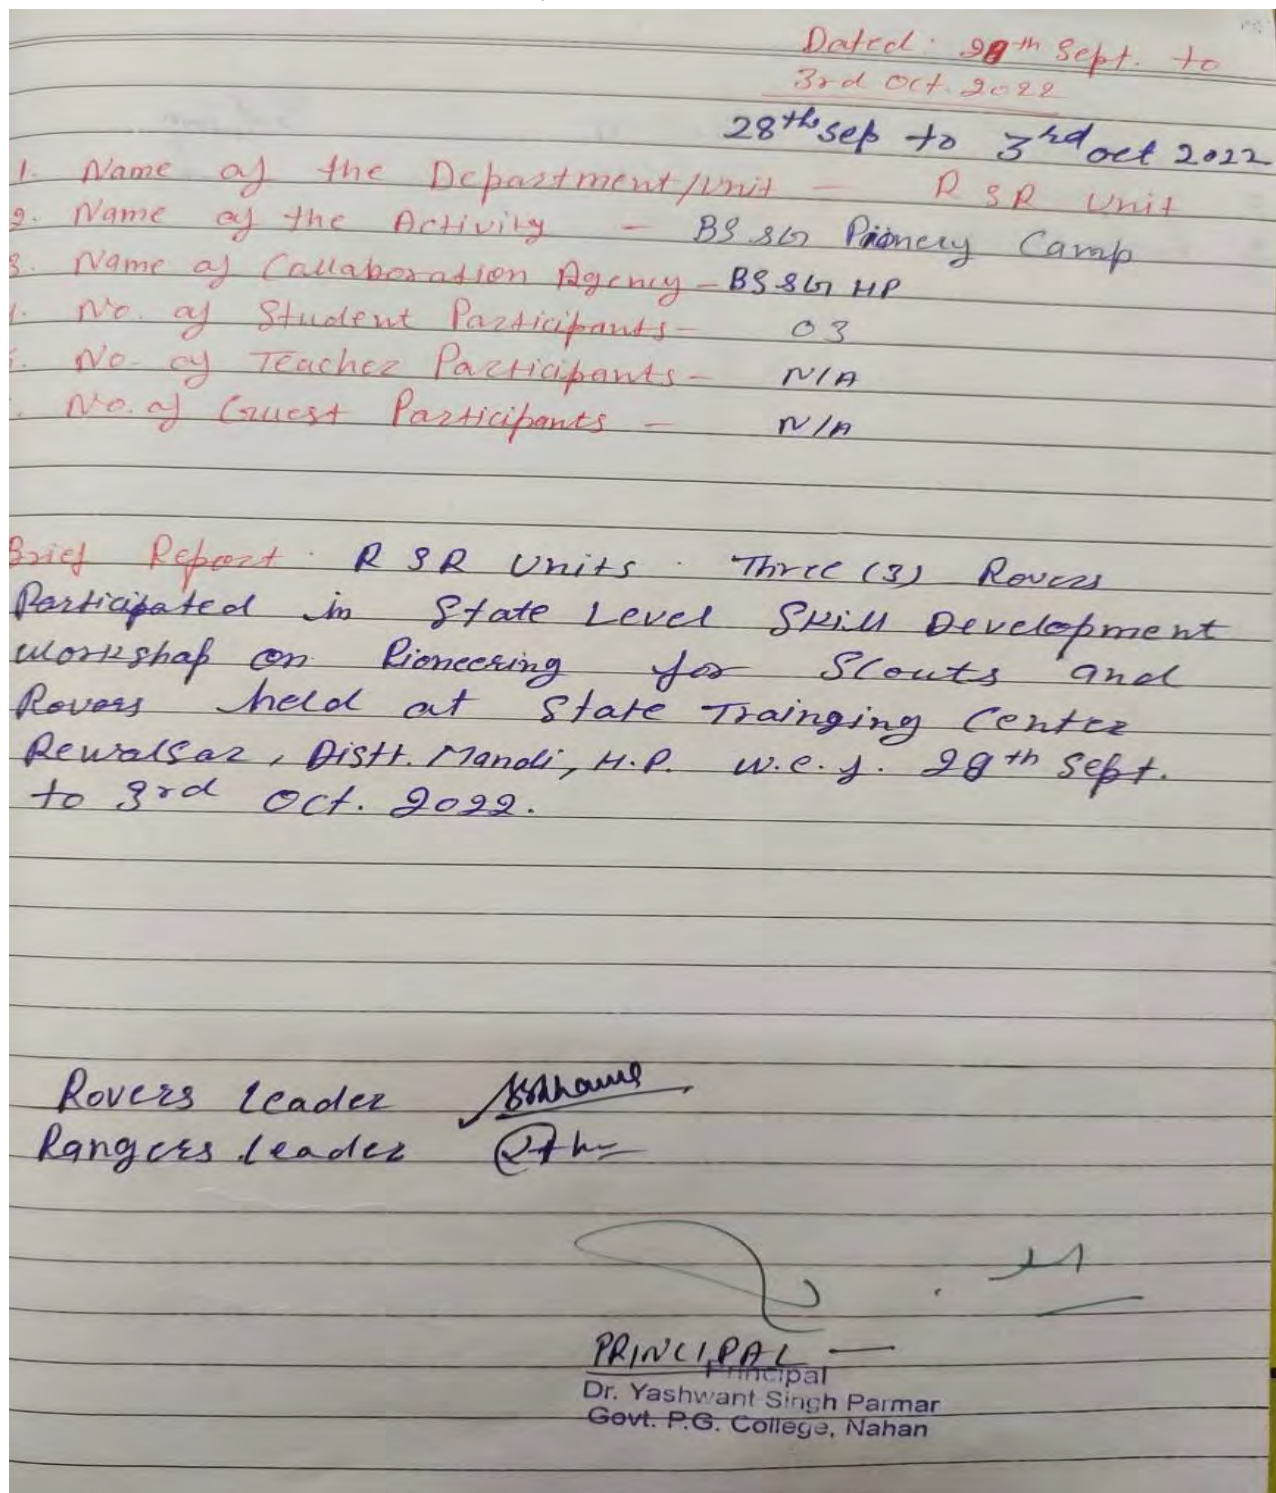 Dated: 28th Sept. to
3rd Oct. 2022
28th sep to 3rd oct 2022
1. Name of the Department/Unit – R & R Unit
2. Name of the Activity – BS & G Pionery Camp
3. Name of Collaboration Agency – BS & G HP
No. of Student Participants – 03
No. of Teacher Participants – N/A
No. of Guest Participants – N/A
Brief Report. R & R Units. Three (3) Rovers
Participated in State Level Skill Development
workshop on Pioneering for Scouts and
Rovers held at State Trainging Center
Rewalsar, Distt. Mandi, H.P. w.e.f. 28th Sept.
to 3rd Oct. 2022.
Rovers Leader
Rangers Leader
PRINCIPAL
Principal
Dr. Yashwant Singh Parmar
Govt. P.G. College, Nahan